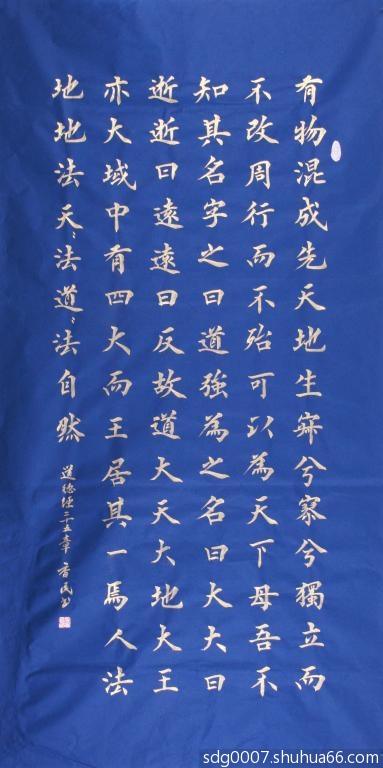 有物混成先天地生寂兮寥兮獨立而
不改周行而不殆可以為天下母吾不
知其名字之曰道強為之名曰大大曰
逝逝曰遠遠曰反故道大天大地大王
亦大域中有四大而王居其一焉人法
地地法天、法道、法自然
道德經二十五章 香民书
sdg0007.shuhua66.com